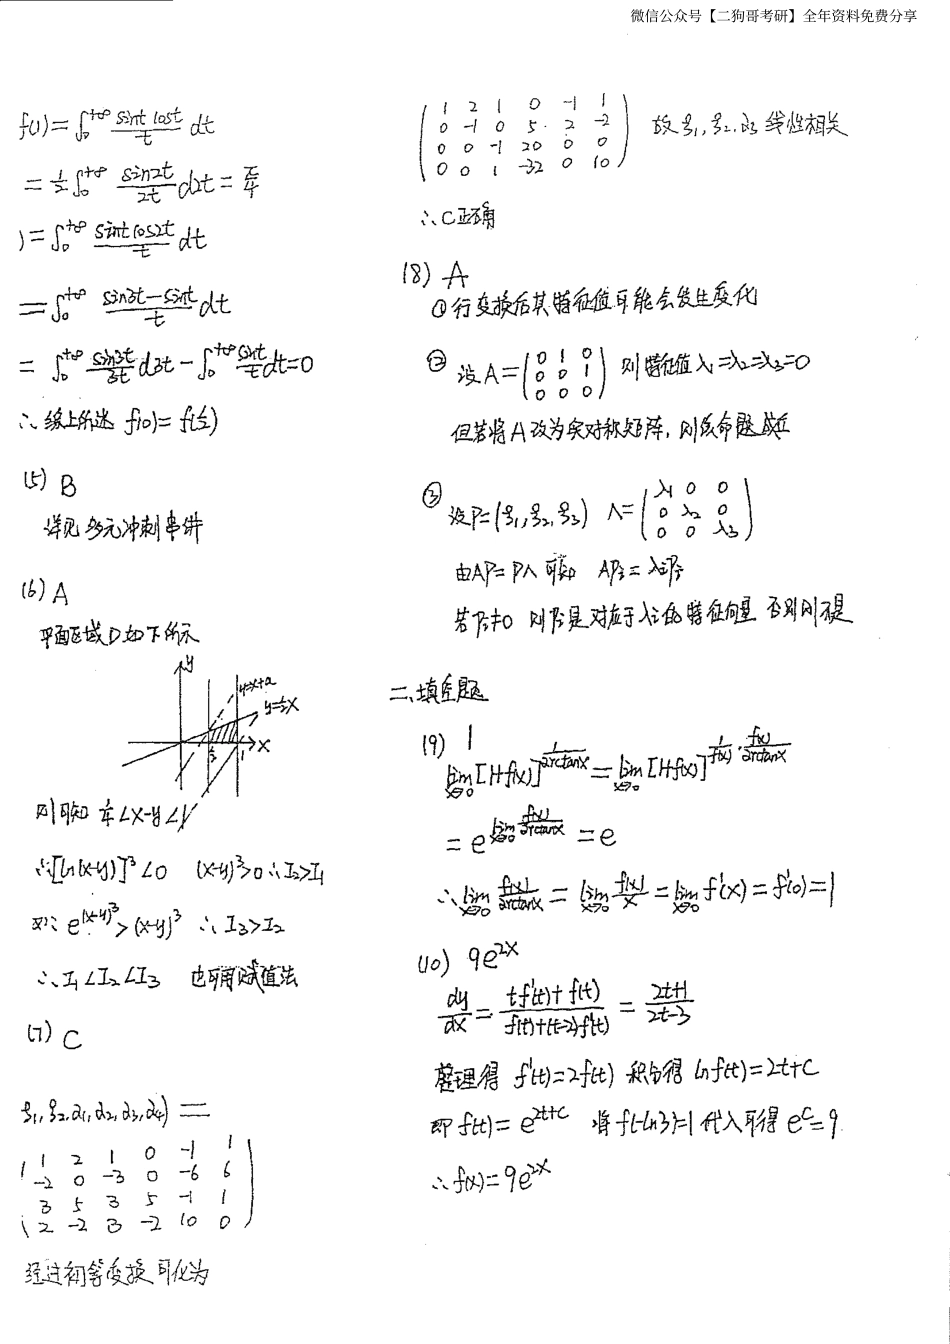 微信公众号【二狗哥考研】全年资料免费分享
f(1)=∫₀^{+∞} sint cost/t dt
=½∫₀^{+∞} sin2t/2t d2t=π/4
)=∫₀^{+∞} sint cos2t/t dt
=∫₀^{+∞} sin3t-sint/t dt
=∫₀^{+∞} sin3t/3t d3t-∫₀^{+∞} sint/t dt=0
∴综上所述 f(0)=f(½)
(5) B
详见多元冲刺串讲
(6) A
平面区域D如下所示
y
y=x+a
y=½x
x
½ 1
则可知 ¼<x-y<1
∴[ln(x-y)]³<0 (x-y)³>0 ∴I₂>I₁
又∵e^{(x-y)³}>(x-y)³ ∴I₃>I₂
∴I₁<I₂<I₃ 也可用赋值法
(7) C
ξ₁,ξ₂,α₁,α₂,α₃,α₄)=
1 2 1 0 -1 1
-2 0 -3 0 -6 6
3 5 3 5 -1 1
2 -2 3 -2 10 0
经过初等变换可化为
1 2 1 0 -1 1
0 -1 0 5 2 -2
0 0 -1 20 0 0
0 0 1 -32 0 10
故ξ₁,ξ₂,α₃线性相关
∴C正确
(8) A
①行变换后其特征值可能会发生变化
②设A=(0 1 0
0 0 1
0 0 0) 则特征值λ₁=λ₂=λ₃=0
但若将A改为实对称矩阵,则该命题成立
③设P=(ξ₁,ξ₂,ξ₃) Λ=(λ₁ 0 0
0 λ₂ 0
0 0 λ₃)
由AP=PΛ可知 APᵢ=λᵢPᵢ
若Pᵢ≠0 则Pᵢ是对应于λᵢ的特征向量 否则则不是
二、填空题
(9) 1
lim_{x→0}[1+f(x)]^{1/arctanx}=lim_{x→0}[1+f(x)]^{1/f(x)·f(x)/arctanx}
=e^{lim_{x→0} f(x)/arctanx}=e
∴lim_{x→0} f(x)/arctanx=lim_{x→0} f(x)/x=lim_{x→0} f'(x)=f'(0)=1
(10) 9e^{2x}
dy/dx=tf'(t)+f(t)/f(t)+(t-2)f'(t)=2t+1/2t-3
整理得 f'(t)=2f(t) 积分得 lnf(t)=2t+C
即f(t)=e^{2t+C} 将f(-ln3)=1代入可得 e^C=9
∴f(x)=9e^{2x}